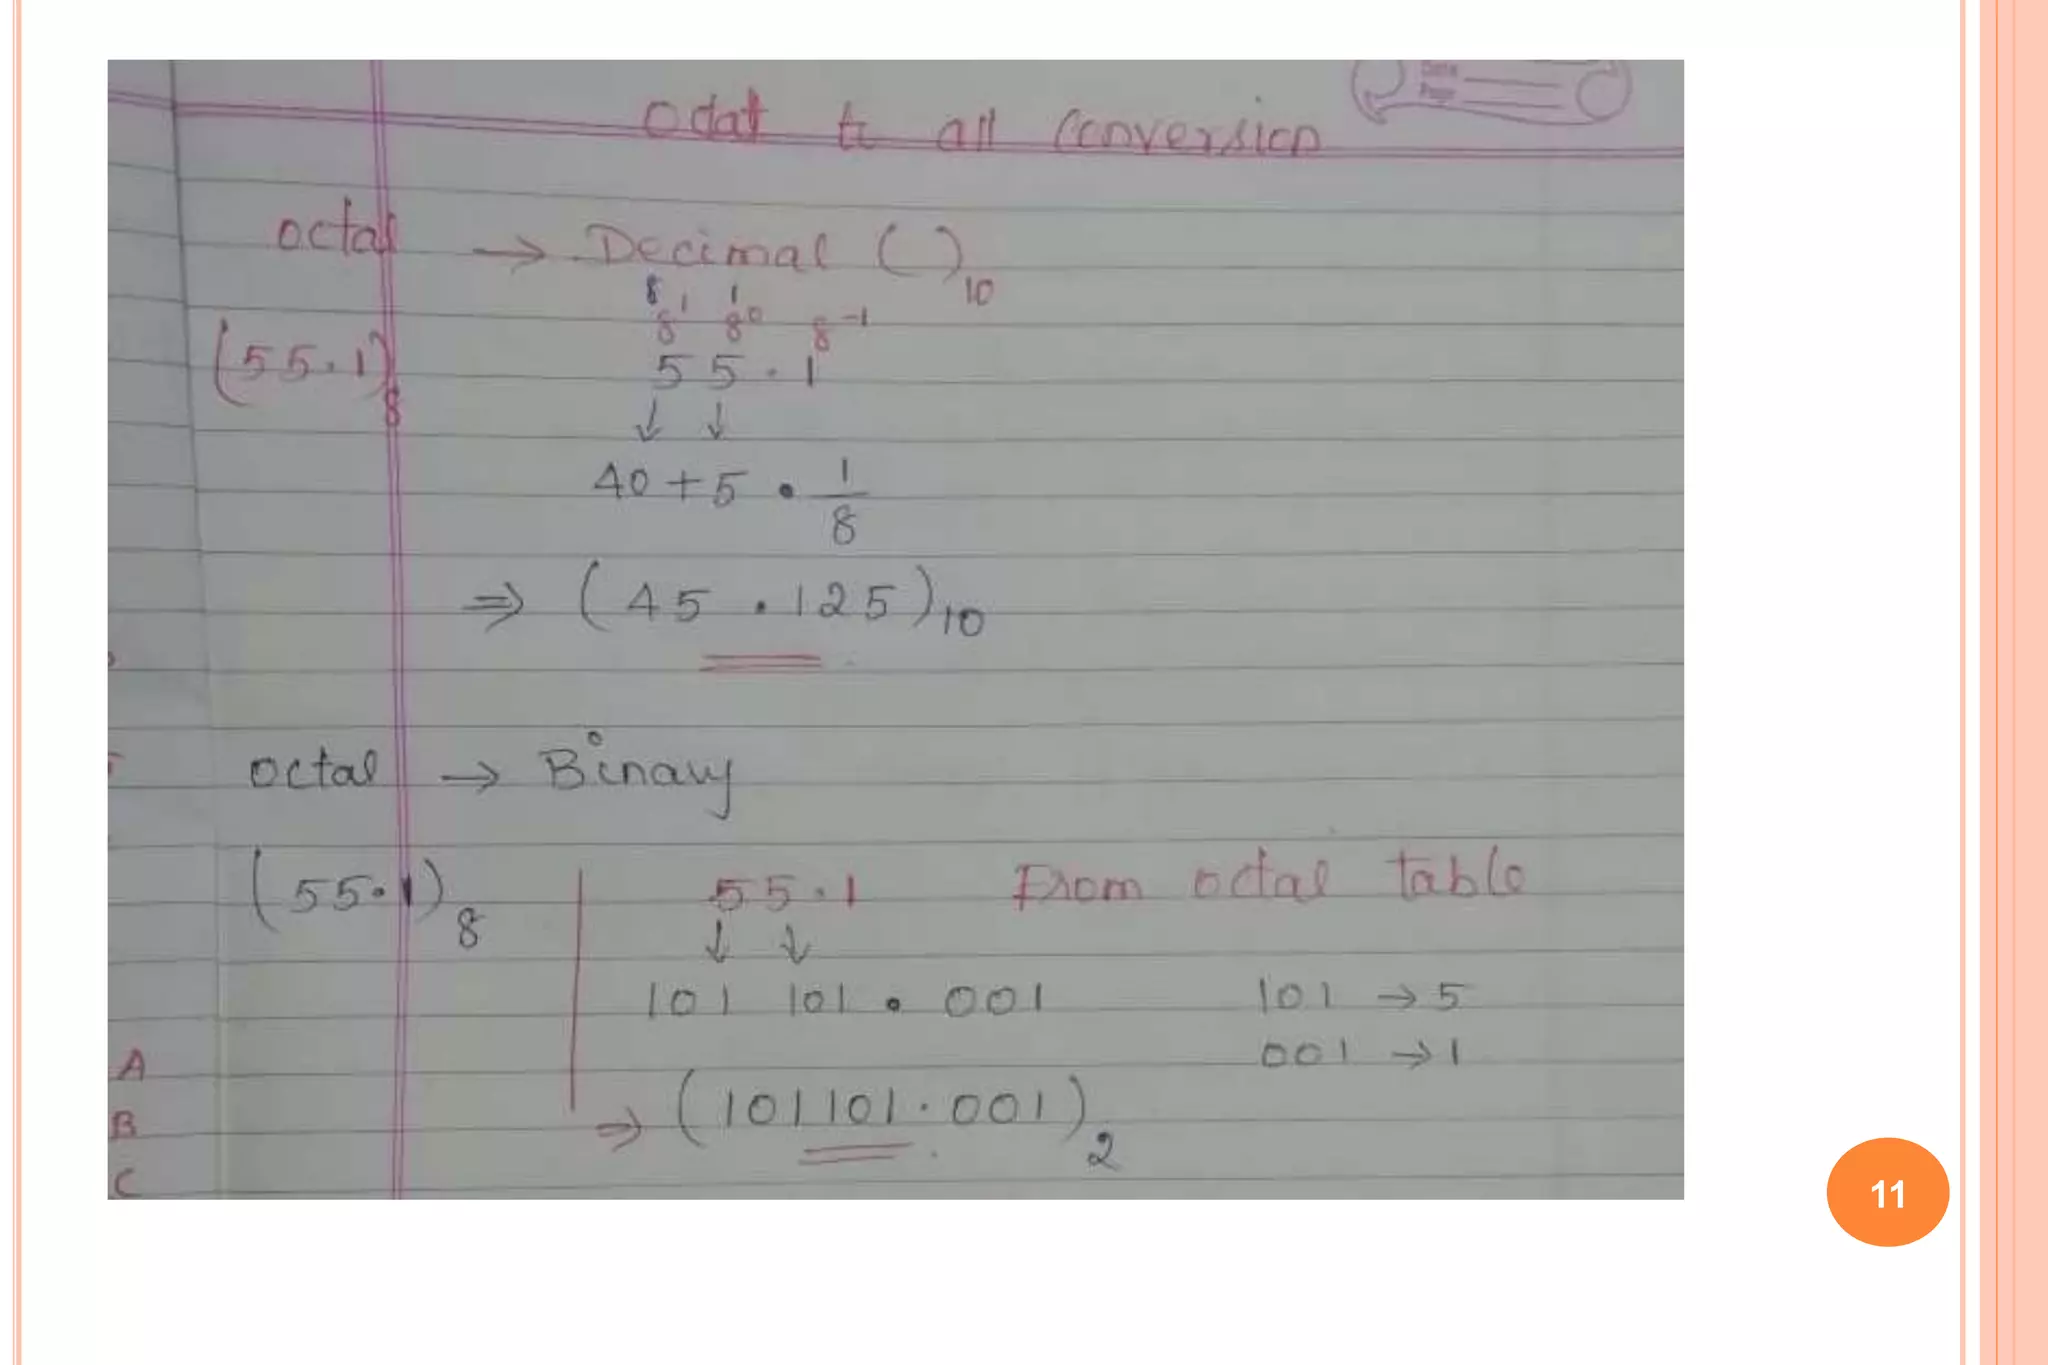 Date
Page
Octal to all Conversion
octal → Decimal ( )₁₀
8 1
8¹ 8⁰ 8⁻¹
(55.1)₈ 55.1
↓ ↓
40+5 . 1/8
⇒ (45.125)₁₀
octal → Binary
(55.1)₈ 55.1 From octal table
↓ ↓
101 101 . 001 101 → 5
A 001 → 1
B ⇒ (101101.001)₂
C
11